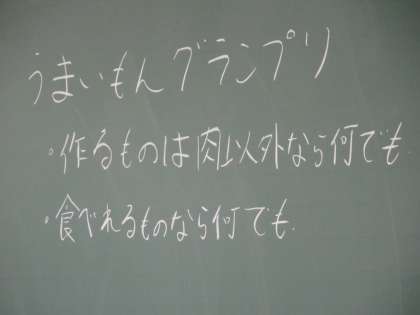 うまいもんグランプリ
・作るものは肉以外なら何でも.
・食べれるものなら何でも.